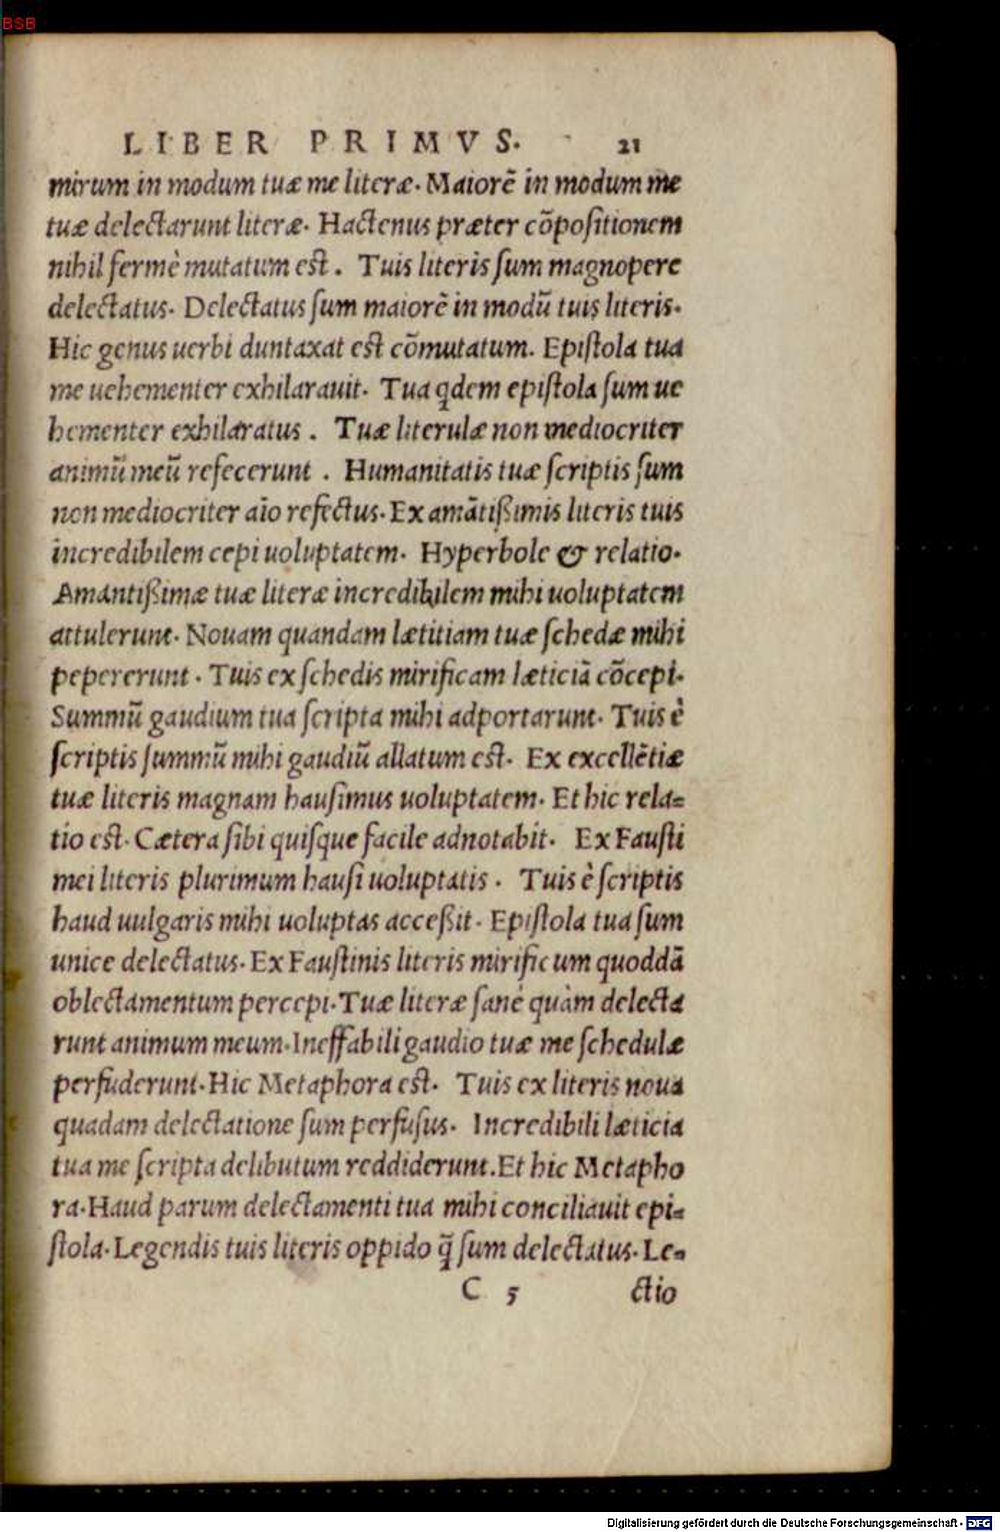 BSB
LIBER PRIMVS. 21
mirum in modum tuæ me literæ. Maiorẽ in modum me
tuæ delectarunt literæ. Hactenus præter cõpoſitionem
nihil fermè mutatum eſt. Tuis literis ſum magnopere
delectatus. Delectatus ſum maiorẽ in modũ tuis literis.
Hic genus uerbi duntaxat eſt cõmutatum. Epiſtola tua
me uehementer exhilarauit. Tua qdem epiſtola ſum ue
hementer exhilaratus. Tuæ literulæ non mediocriter
animũ meũ refecerunt. Humanitatis tuæ ſcriptis ſum
non mediocriter aĩo refectus. Ex amãtißimis literis tuis
incredibilem cepi uoluptatem. Hyperbole & relatio.
Amantißimæ tuæ literæ incredibilem mihi uoluptatem
attulerunt. Nouam quandam lætitiam tuæ ſchedæ mihi
pepererunt. Tuis ex ſchedis mirificam læticiã cõcepi.
Summũ gaudium tua ſcripta mihi adportarunt. Tuis è
ſcriptis ſummũ mihi gaudiũ allatum eſt. Ex excellẽtiæ
tuæ literis magnam hauſimus uoluptatem. Et hic rela=
tio eſt. Cætera ſibi quiſque facile adnotabit. Ex Fauſti
mei literis plurimum hauſi uoluptatis. Tuis è ſcriptis
haud uulgaris mihi uoluptas acceßit. Epiſtola tua ſum
unice delectatus. Ex Fauſtinis literis mirificum quoddã
oblectamentum percepi. Tuæ literæ ſanè quàm delecta
runt animum meum. Ineffabili gaudio tuæ me ſchedulæ
perfuderunt. Hic Metaphora eſt. Tuis ex literis noua
quadam delectatione ſum perfuſus. Incredibili læticia
tua me ſcripta delibutum reddiderunt. Et hic Metapho
ra. Haud parum delectamenti tua mihi conciliauit epi=
ſtola. Legendis tuis literis oppido q̃ ſum delectatus. Le=
C 5 ctio
Digitalisierung gefördert durch die Deutsche Forschungsgemeinschaft - DFG